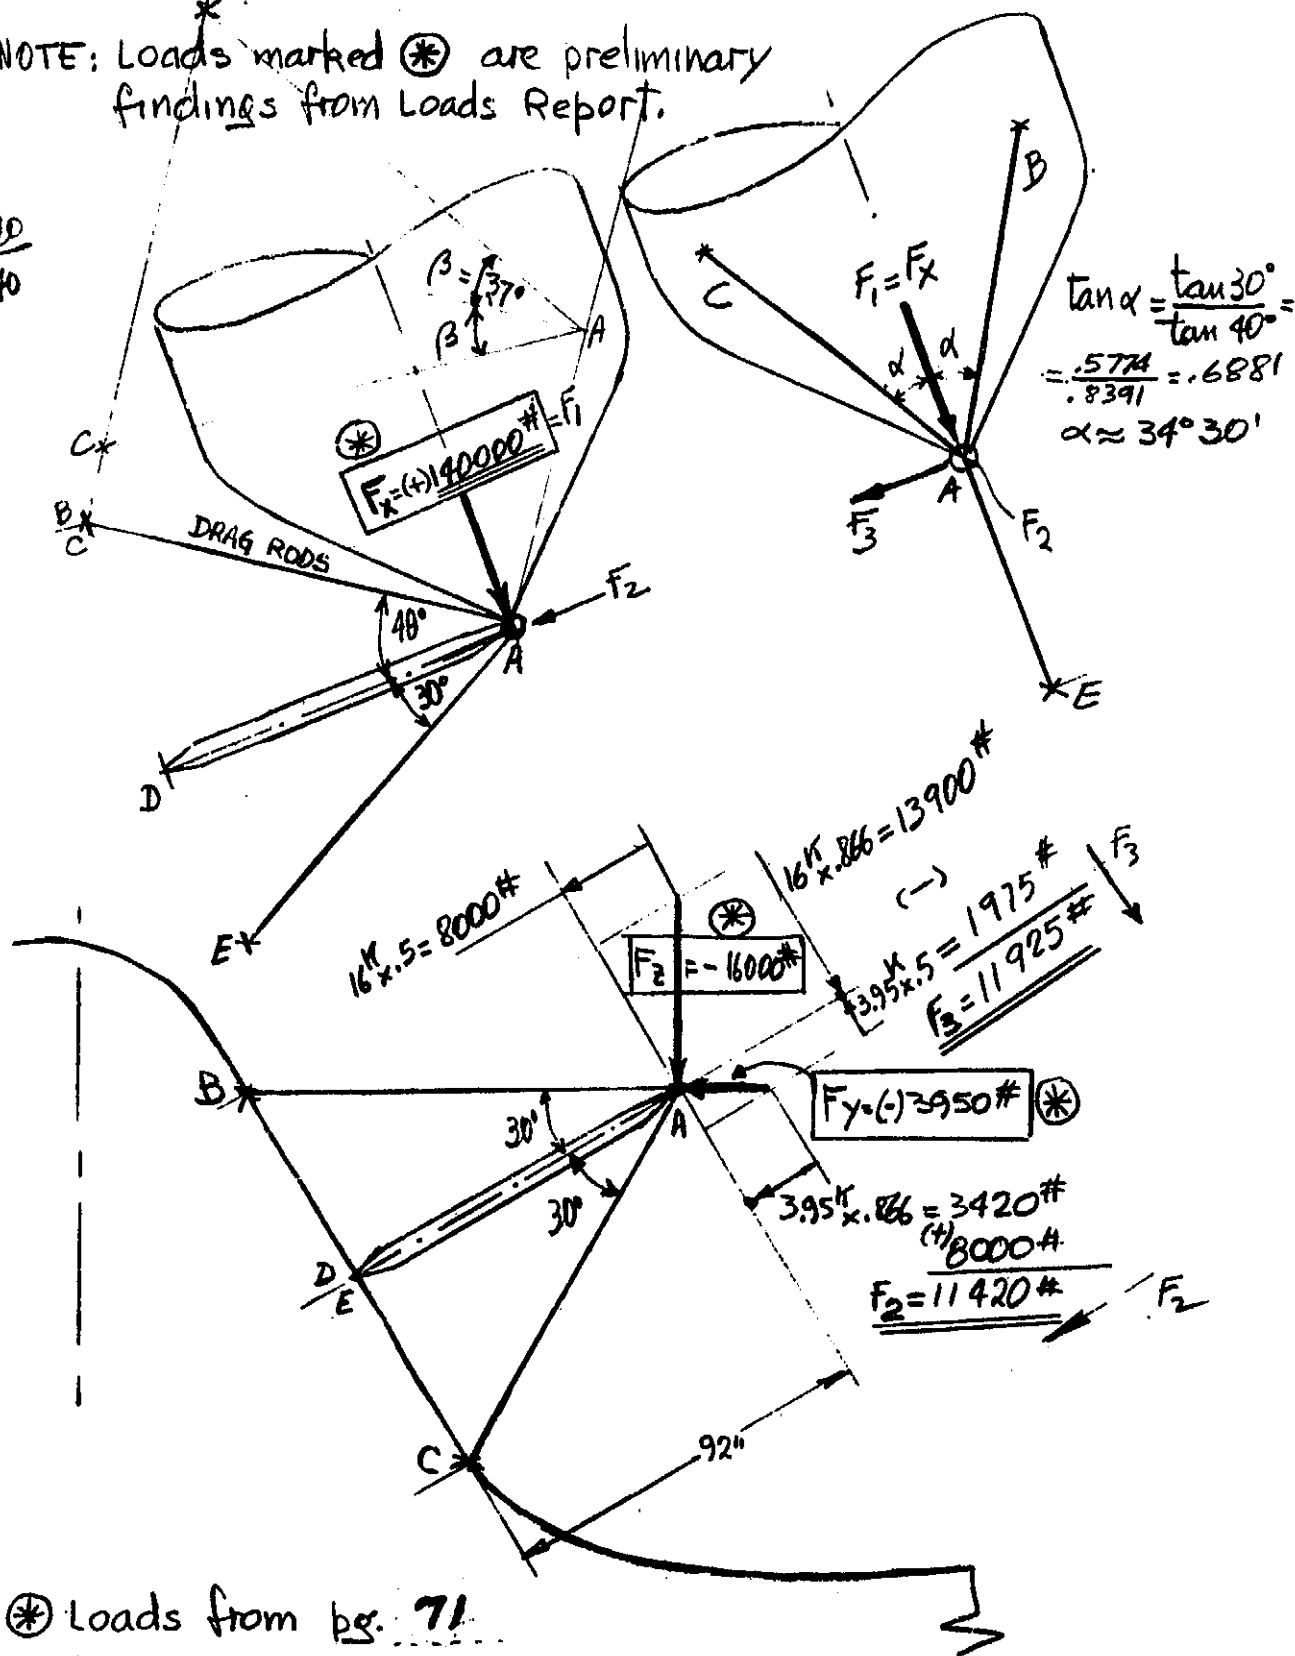 NOTE: Loads marked ⊛ are preliminary
findings from Loads Report.
40
β = 37°
β
A
C
B
C
DRAG RODS
⊛
Fx=(+)140000# =F1
F2
40°
30°
A
D
E
B
C
F1=Fx
α α
A
F3
F2
E
tan α = tan 30° / tan 40° =
= .5774 / .8391 = .6881
α ≈ 34° 30'
16K x .5 = 8000#
⊛
Fz = - 16000#
16K x .866 = 13900#
(-)
3.95K x .5 = 1975#
F3 = 11925#
F3
B
30°
30°
A
Fy=(-)3950# ⊛
3.95K x .866 = 3420#
(+) 8000#
F2 = 11420#
F2
D
E
C
92"
⊛ Loads from pg. 71